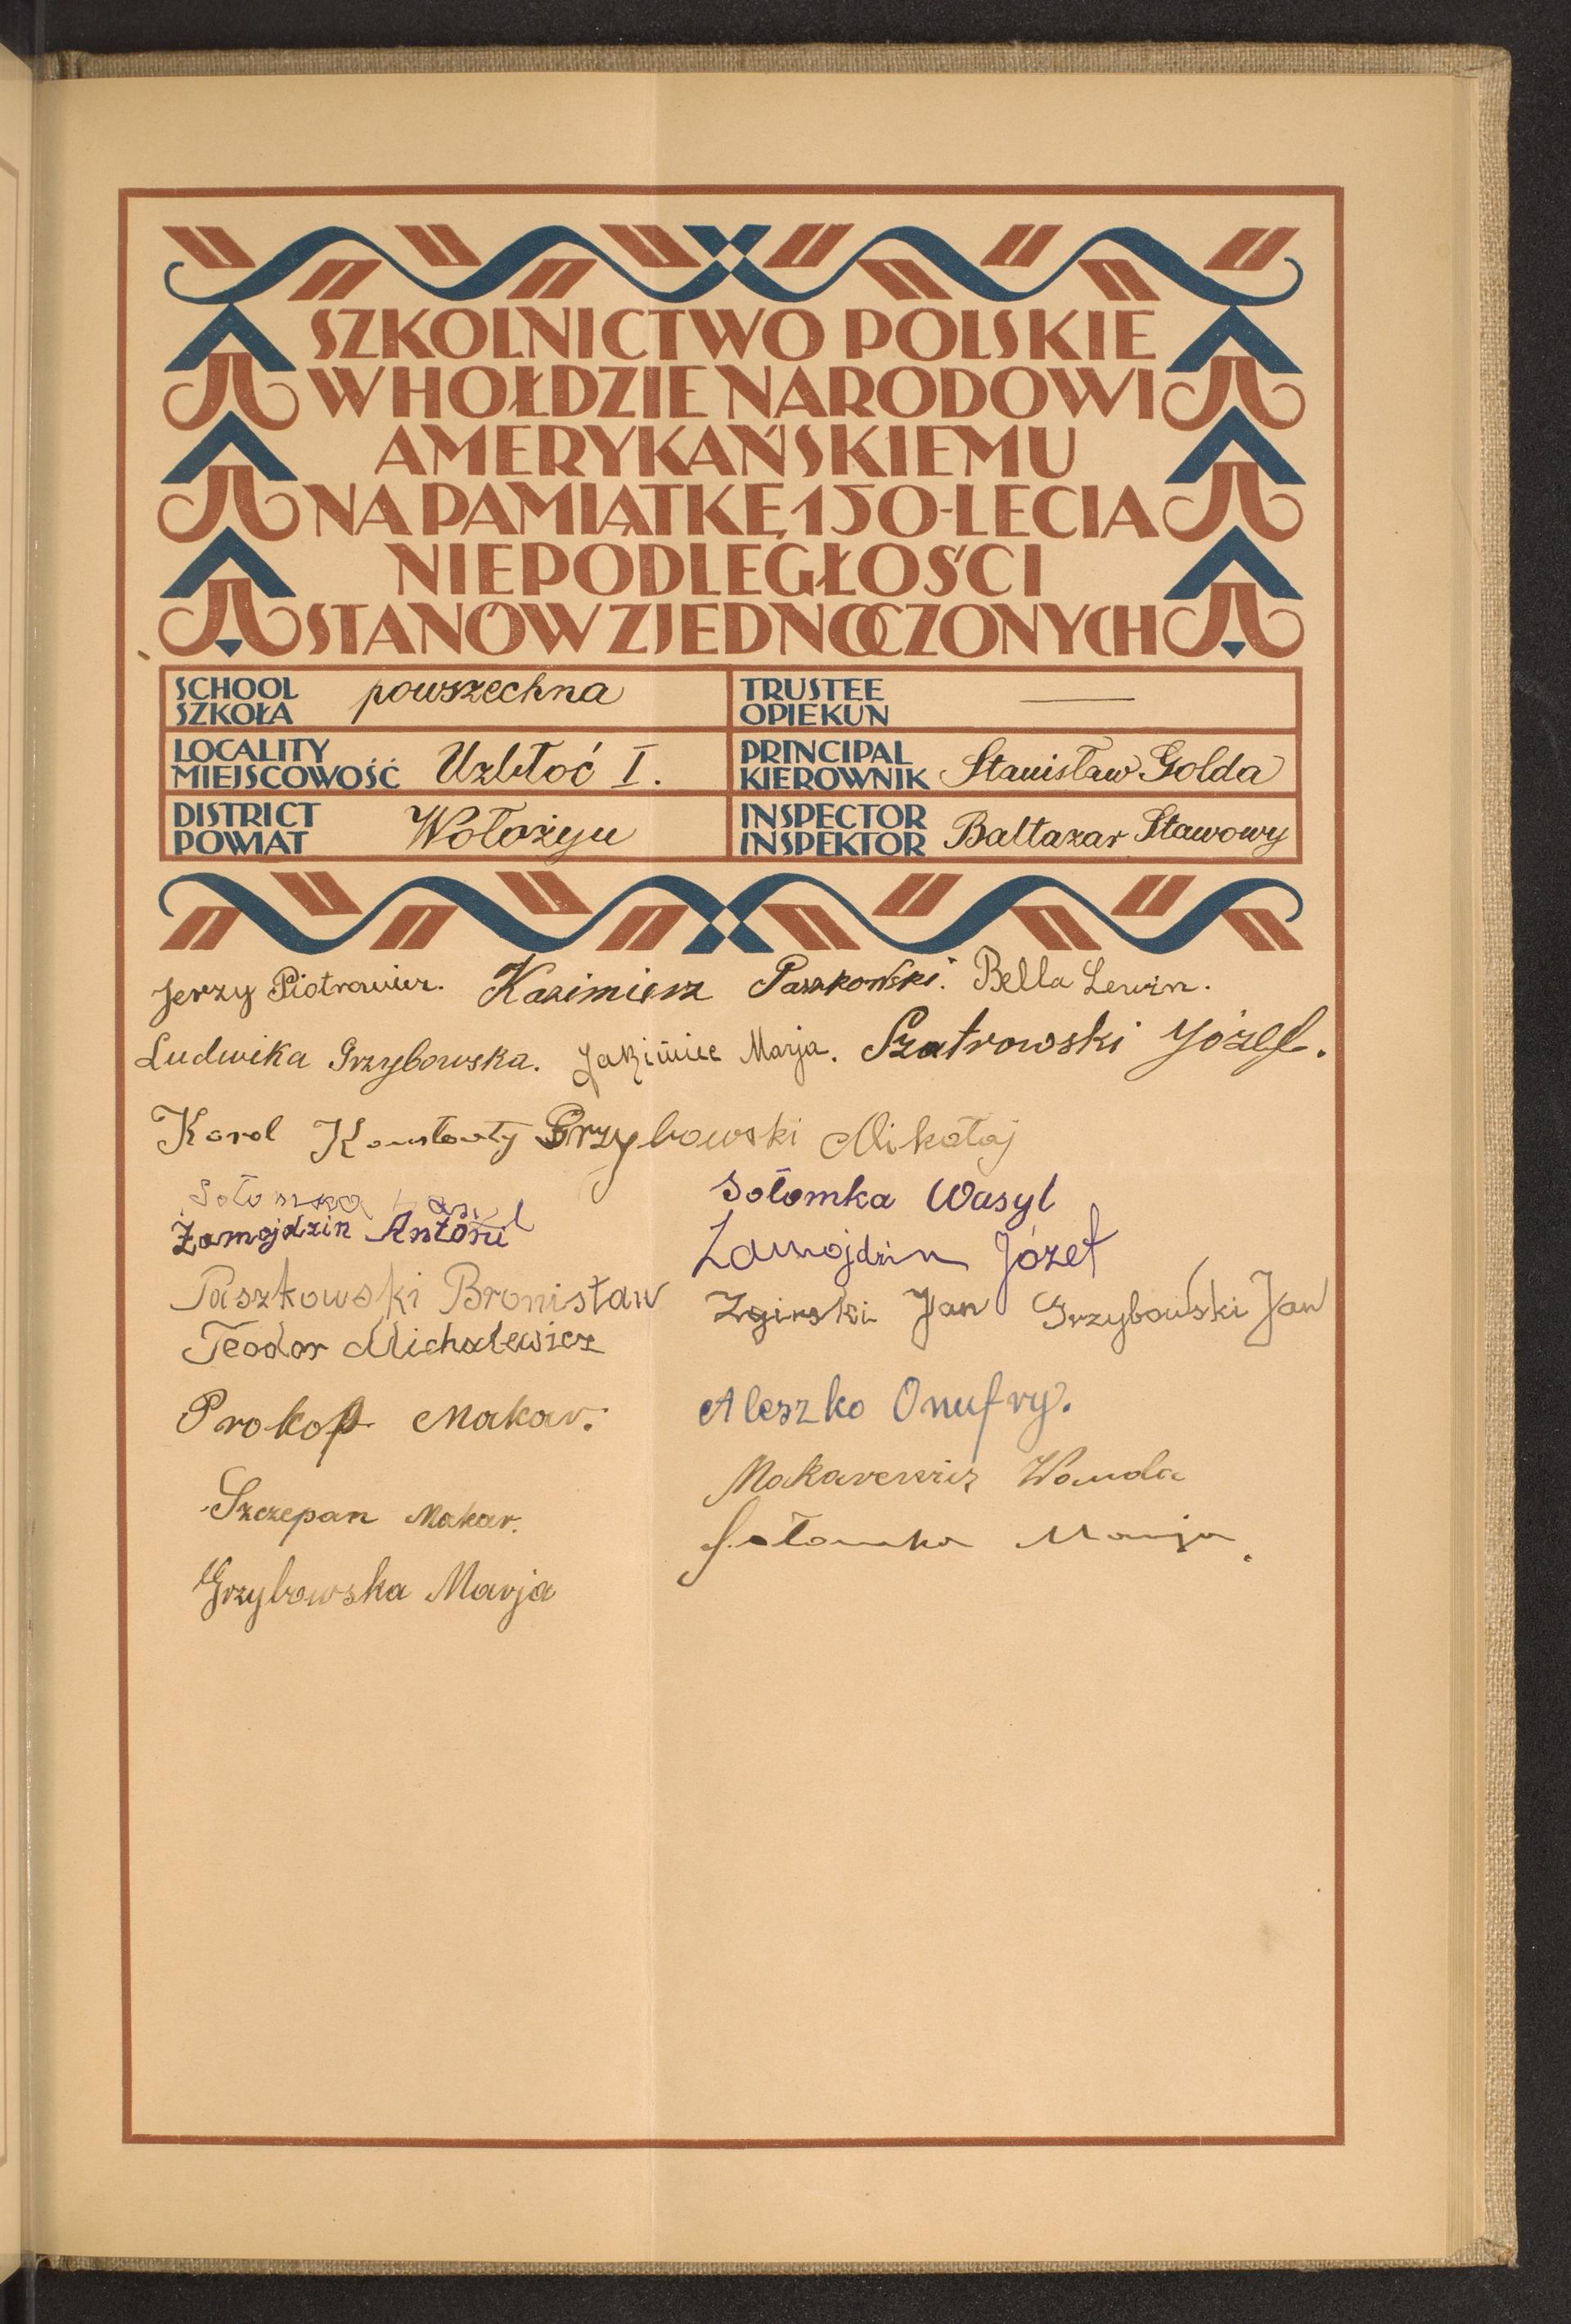 SZKOLNICTWO POLSKIE
W HOŁDZIE NARODOWI
AMERYKAŃSKIEMU
NA PAMIĄTKĘ 150-LECIA
NIEPODLEGŁOŚCI
STANÓW ZJEDNOCZONYCH
SCHOOL
SZKOŁA powszechna
TRUSTEE
OPIEKUN —
LOCALITY
MIEJSCOWOŚĆ Uzbłoć I.
PRINCIPAL
KIEROWNIK Stanisław Golda
DISTRICT
POWIAT Wołożyn
INSPECTOR
INSPEKTOR Baltazar Stawowy
Jerzy Piotrowicz. Kazimierz Paszkowski. Bella Lewin.
Ludwika Grzybowska. Marja. Szatrowski Józef.
Karol Grzybowski Mikołaj
Sołomka
Sołomka Wasyl
Zamojdzin Antoni
Zamojdzin Józef
Paszkowski Bronisław
Zgirski Jan Grzybowski Jan
Teodor Michalewicz
Prokop Makar.
Aleszko Onufry.
Makarewicz Wanda
Szczepan Makar.
Sołomka Marja.
Grzybowska Marja